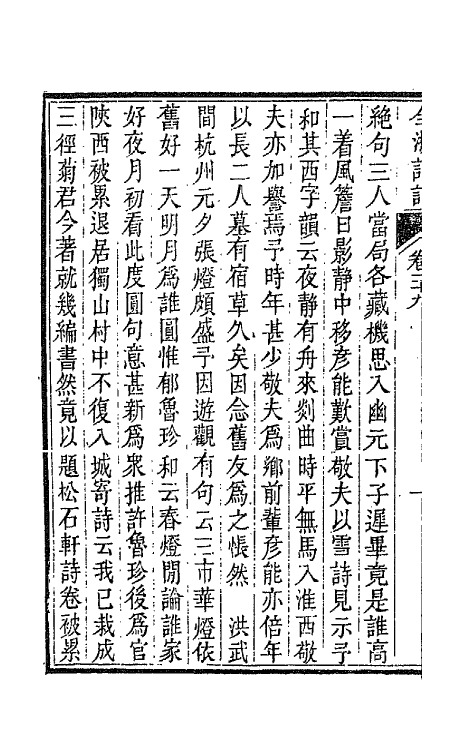 絶句三人當局各藏機思入幽元下子遲畢竟是誰高
一着風簷日影靜中移彦能歎賞敬夫以雪詩見示予
和其西字韻云夜靜有舟來剡曲時平無馬入淮西敬
夫亦加譽焉予時年甚少敬夫爲鄉前輩彦能亦倍年
以長二人墓有宿草久矣因念舊友爲之悵然　洪武
間杭州元夕張燈頗盛予因遊觀有句云三市華燈依
舊好一天明月爲誰圓惟郁魯珍和云春燈閒論誰家
好夜月初看此度圓句意甚新爲衆推許魯珍後爲官
陝西被累退居獨山村中不復入城寄詩云我已栽成
三徑菊君今著就幾編書然竟以題松石軒詩卷被累
卷二十九
一